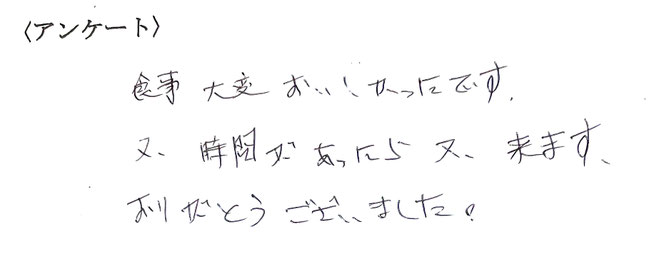 〈アンケート〉
食事 大変 おいしかったです。
又、時間があったら 又、来ます、
ありがとうございました。